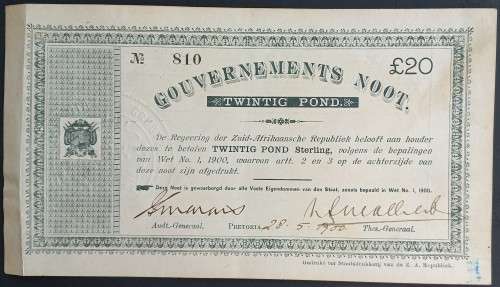 № 810
£20
GOUVERNEMENTS NOOT.
TWINTIG POND.
De Regeering der Zuid-Afrikaansche Republiek belooft aan houder
dezes te betalen TWINTIG POND Sterling, volgens de bepalingen
van Wet No. 1, 1900, waarvan artt. 2 en 3 op de achterzijde van
deze noot zijn afgedrukt.
Deze Noot is gewaarborgd door alle Vaste Eigendommen van den Staat, zooals bepaald in Wet No. 1, 1900.
Audt.-Generaal. PRETORIA 28-5-1900 Thes.-Generaal.
Gedrukt ter Staatsdrukkerij van de Z. A. Republiek.